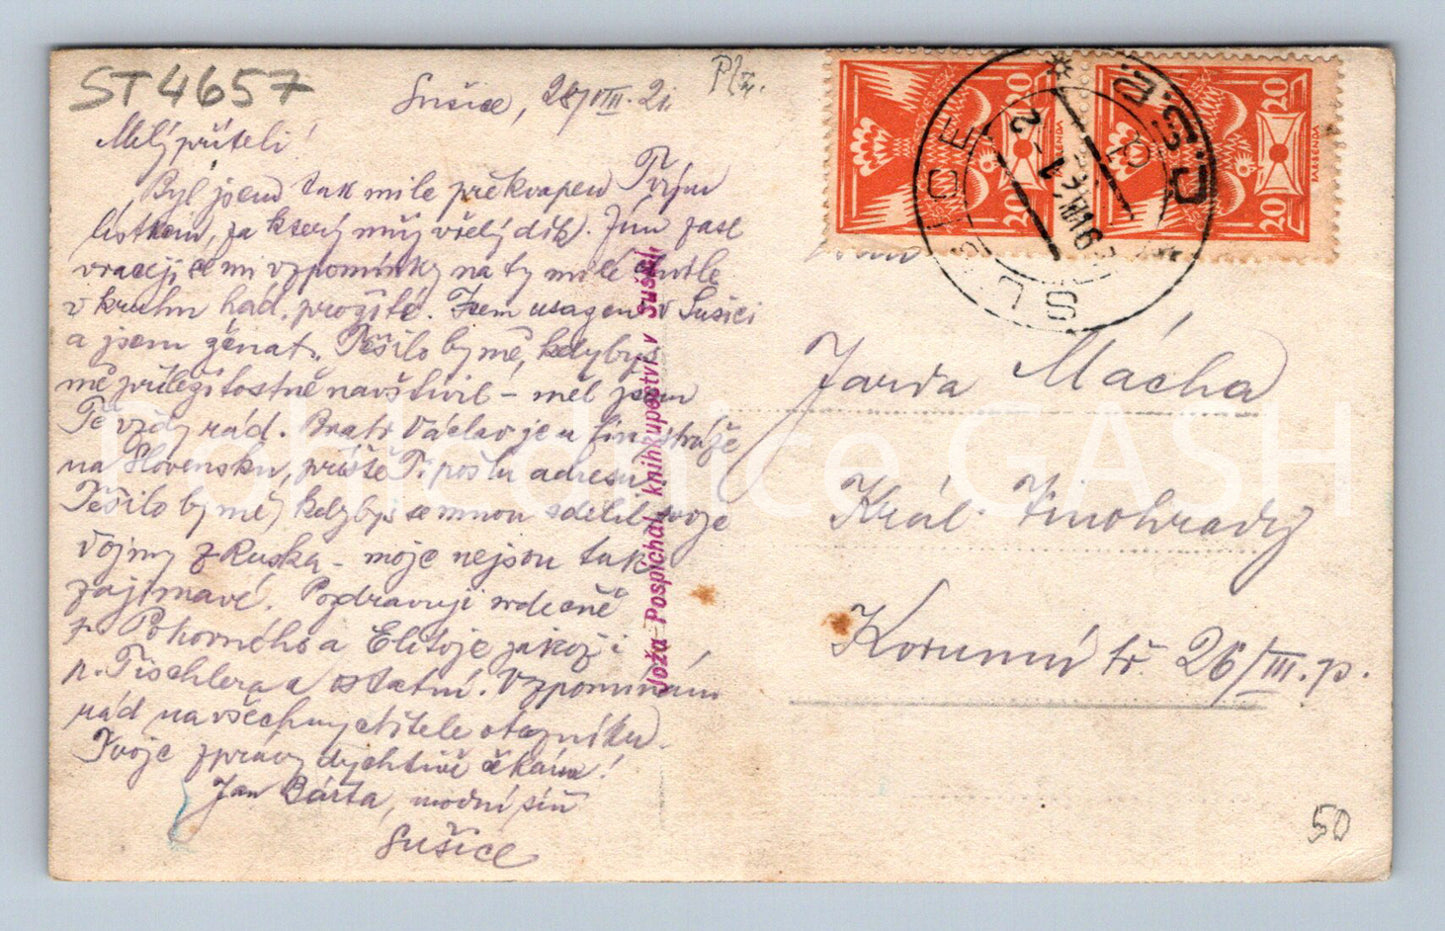 ST4657
Plz.
Sušice, 28/VIII. 21
Milý příteli!
Byl jsem tak mile překvapen Tvým
lístkem, za který můj vřelý dík. Jím zase
vracejí se mi vzpomínky na ty milé chvíle
v kruhu had. prožité. Jsem usazen v Sušici
a jsem ženat. Těšilo by mě, kdybys
mě příležitostně navštívil – měl jsem
Tě vždy rád. Bratr Václav je u fin. stráže
na Slovensku, příště Ti pošlu adresu.
Těšilo by mě, kdybys se mnou sdělil svoje
dojmy z Ruska – moje nejsou tak
zajímavé. Pozdravuji srdečně
p. Pokorného a jakož i
p. Tischlera a ostatní. Vzpomínám
rád na všechny
Tvoje zprávy dychtivě čekám!
Jan Bárta, módní síň
Sušice
Joža Pospíchal, knihkupectví v Sušici
20 20
20 20
FA. BENDA
SUŠICE
Č.S.R.
Jarda Mácha
Král. Vinohrady
Korunní tř. 26/III. p.
50
Pohlednice GASH